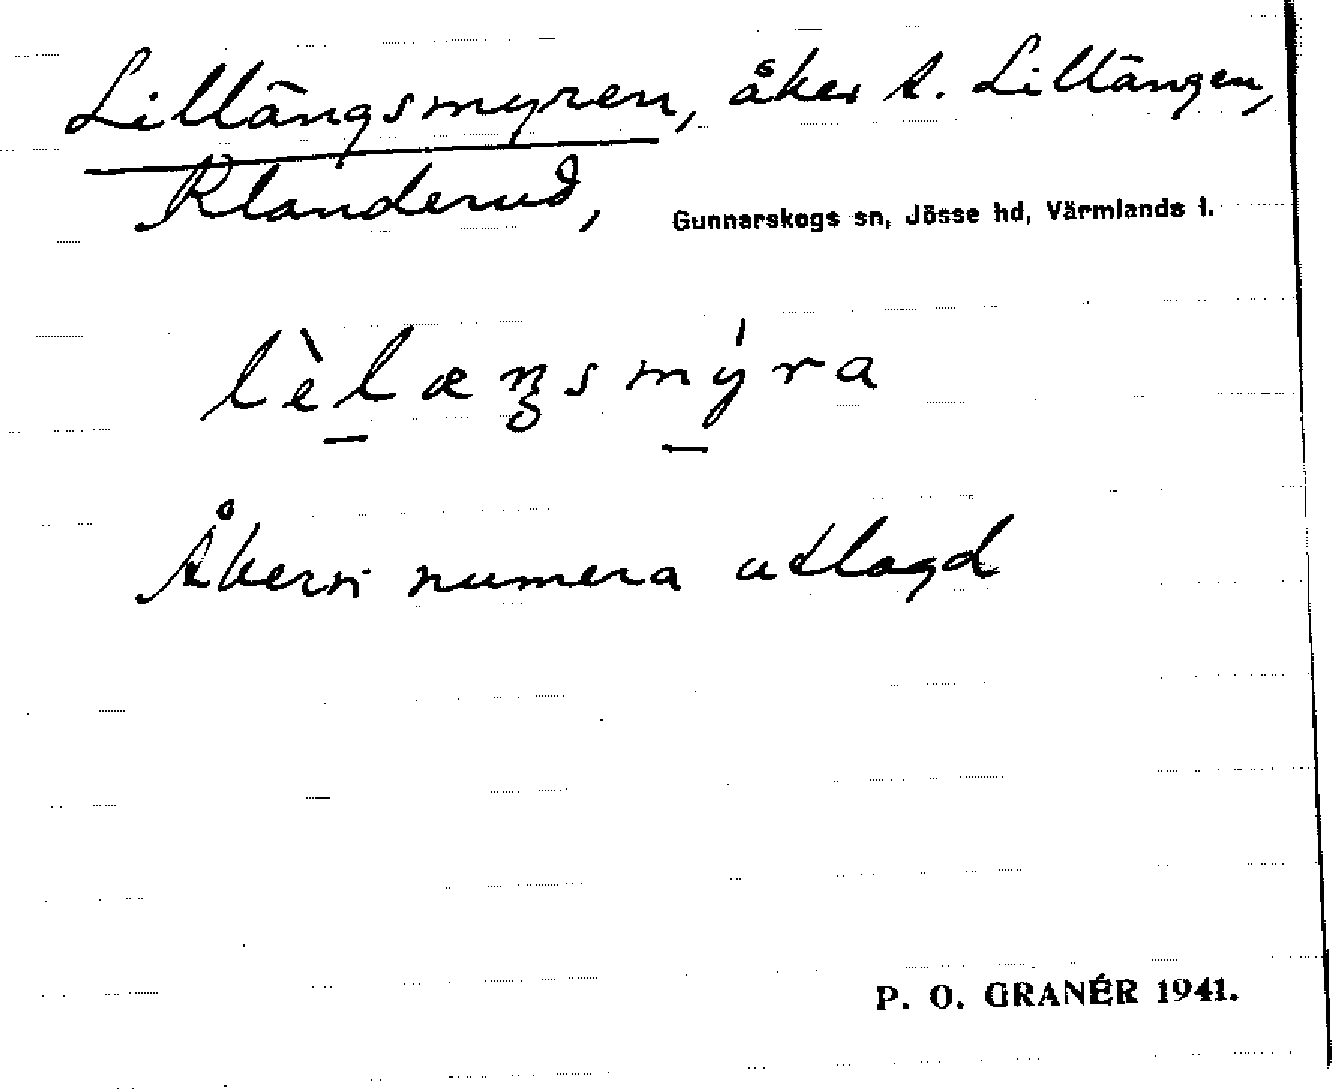 Lillängsmyren, åker t. Lillängen,
Klanderud, Gunnarskogs sn, Jösse hd, Värmlands l.
lèlæŋsmýra
Åkern numera utlagd
P. O. GRANÉR 1941.